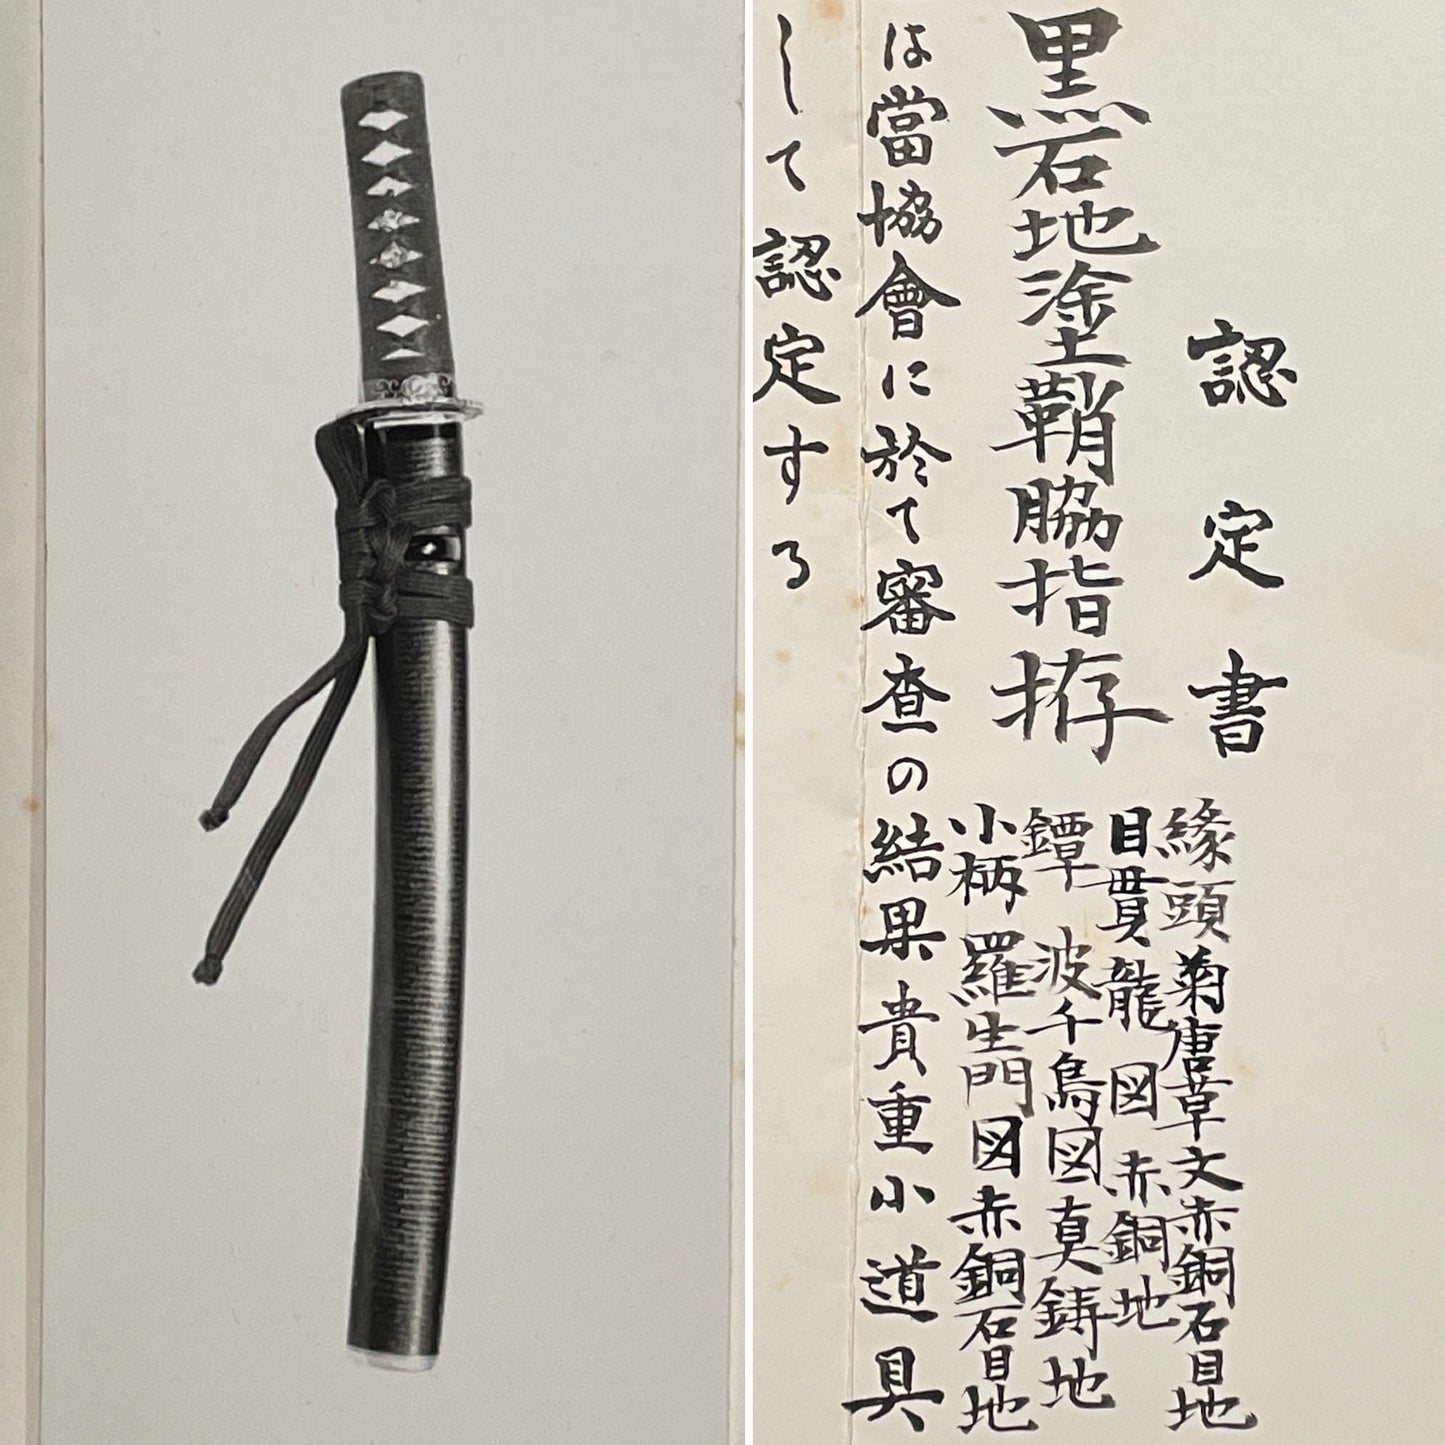 認定書
黒石地塗鞘脇指拵
縁頭菊唐草文赤銅石目地
目貫龍図赤銅地
鐔 波千鳥図真鋳地
小柄 羅生門図赤銅石目地
は當協會に於て審査の結果貴重小道具
して認定する